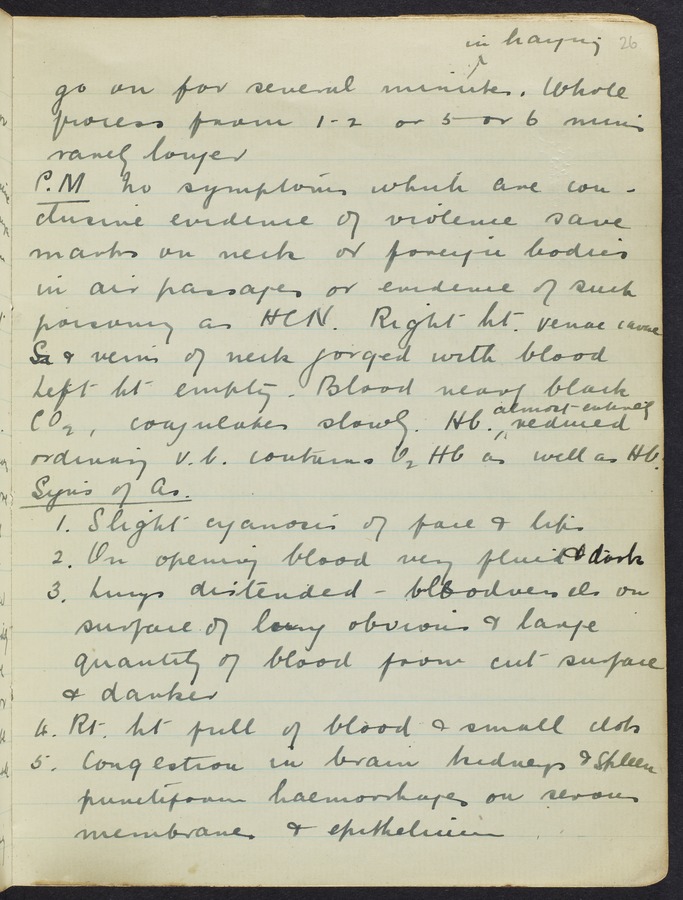 in hanging 26
go on for several minutes. Whole
process from 1-2 or 5 or 6 mins
rarely longer
P.M No symptoms which are con-
clusive evidence of violence save
marks on neck or foreign bodies
in air passages or evidence of such
poisoning as HCN. Right ht. venae cavae
& veins of neck gorged with blood
Left ht empty. Blood nearly black
CO2, coagulates slowly. Hb. almost entirely reduced
ordinary v.b. contains O2 Hb as well as Hb.
Signs of As.
1. Slight cyanosis of face & lips
2. On opening blood very fluid & dark
3. Lungs distended - bloodvessels on
surface of lung obvious & large
quantity of blood from cut surface
& darker
4. Rt. ht full of blood & small clots
5. Congestion in brain kidneys & spleen
punctiform haemorrhages on serous
membranes & epithelium